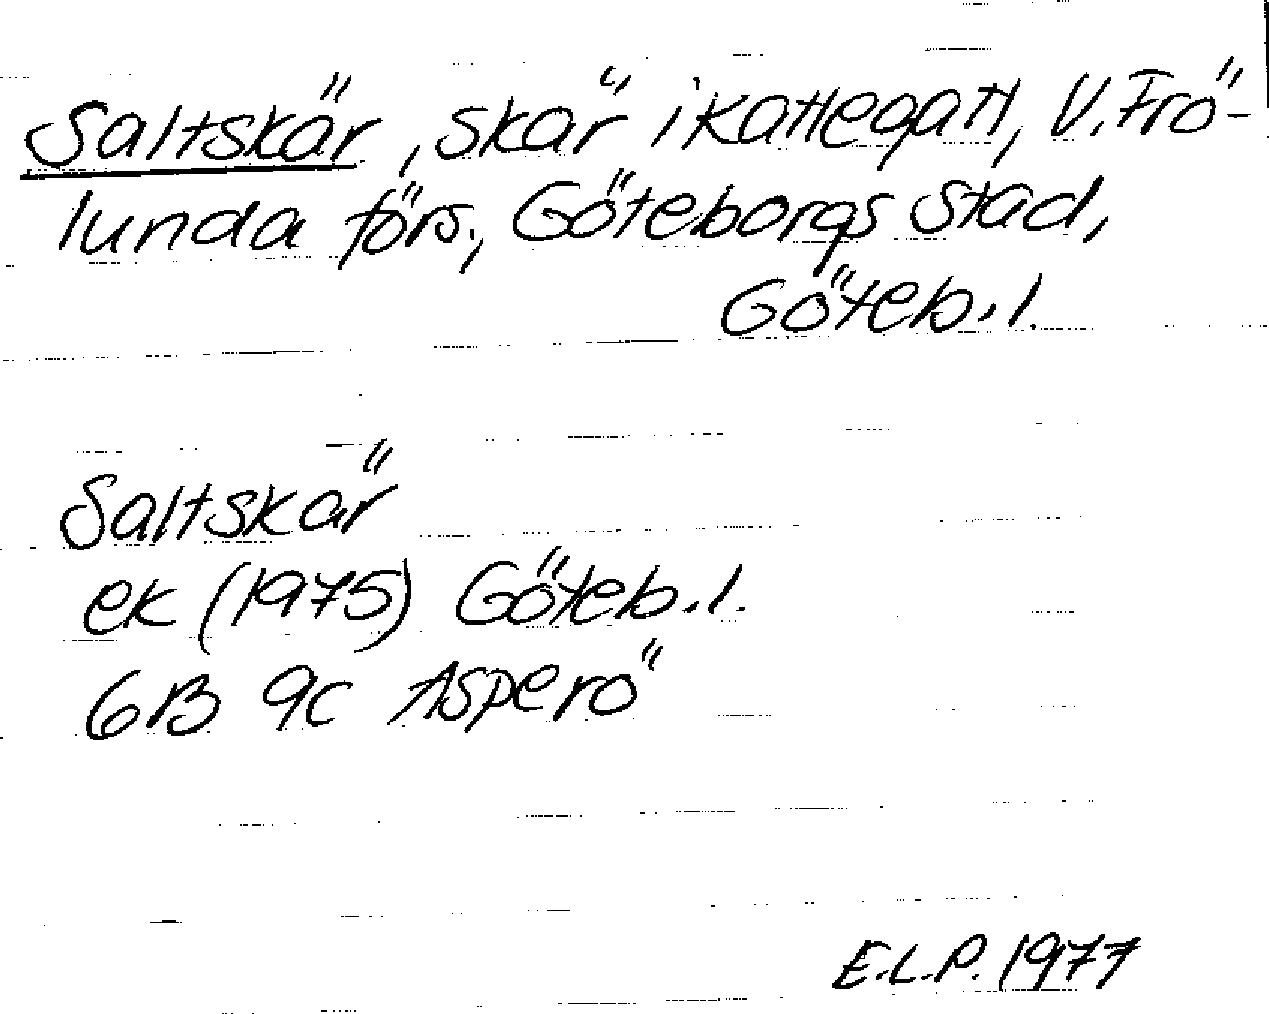 Saltskär, skär i Kattegatt, V. Frö-
lunda förs., Göteborgs stad,
Göteb. l.
Saltskär
ek (1975) Göteb. l.
6B 9c Asperö
E.L.P. 1977